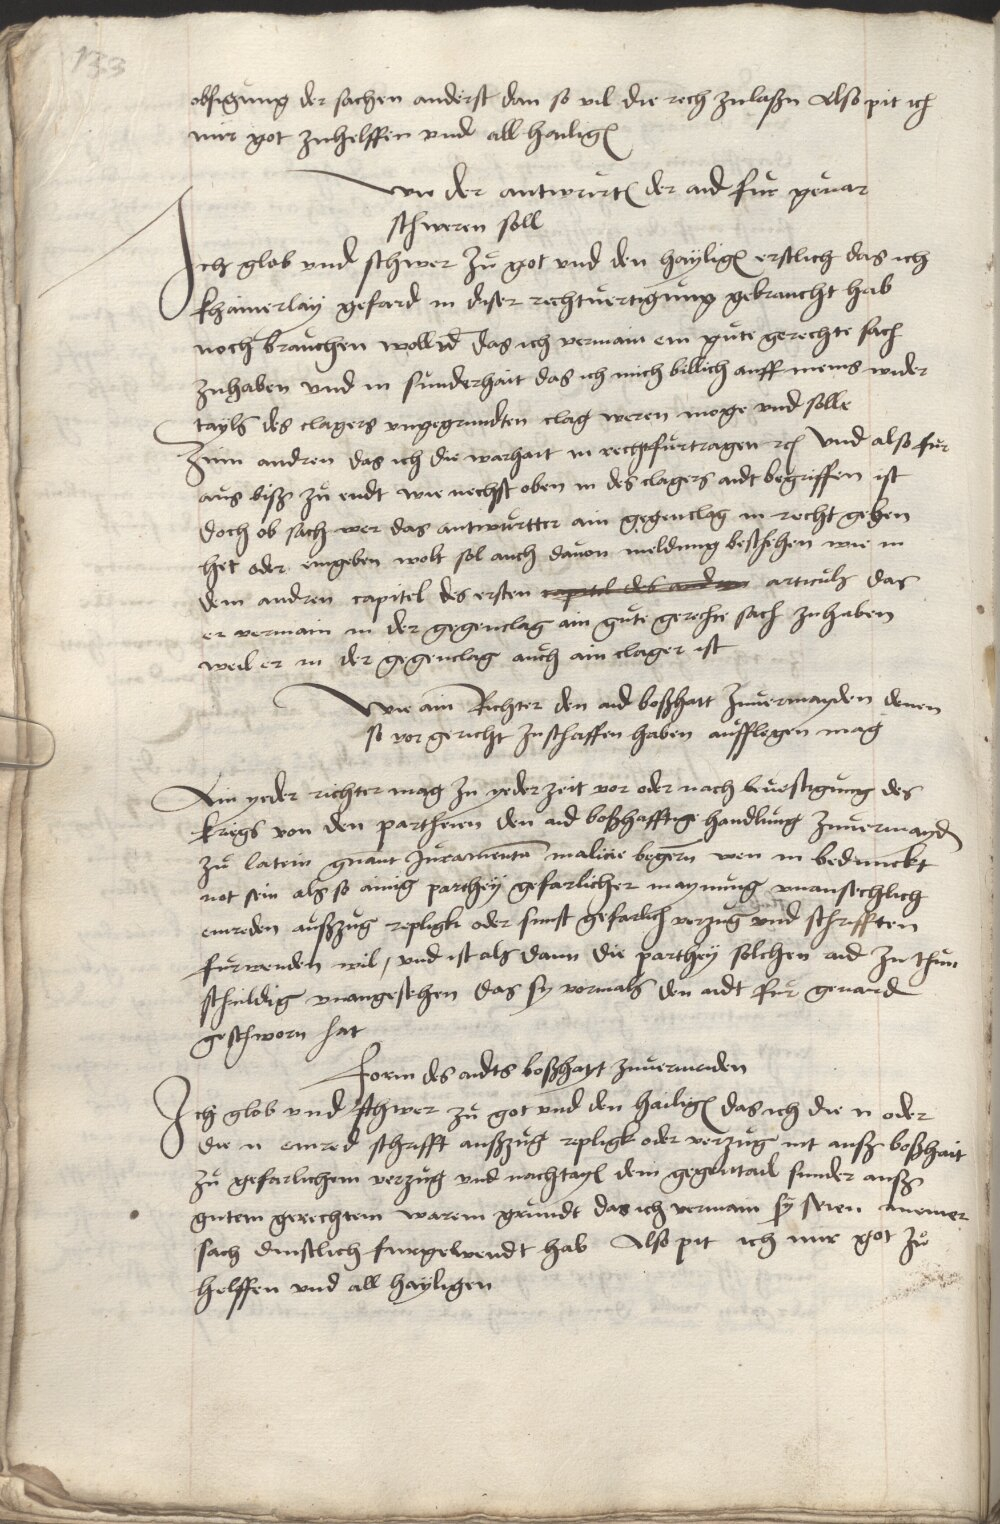 133
obsigung der sachen anderst dan so vil die rech zulaßn Also pit ich
mir got zuhelffen vnd all hailigen
wie der antwurter der aid fur gevar
schweren soll
Ich glob vnd schwer zu got vnd den hayligen erstlich das ich
khainerlay gefard in diser rechtuertigung gebraucht hab
noch brauchen woll vnd das ich vermain ein gute gerechte sach
zuhaben vnd in sunderhait das ich mich billich auff meins wider
tayls des clagers vngegrundten clag weren moge vnd solle
Zum andren das ich die warhait in recht furtragen rc Vnd also fur
aus biß zu endt wie nechst oben in des clagers aidt begriffen ist
doch ob sach wer das antwurtter ain gegenclag in recht geben
het oder eingeben wolt sol auch dauon meldung beschehen wie in
dem andren capitel des ersten capitel des andren articuls das
er vermain in der gegenclag ain gute gerechte sach zuhaben
weil er in der gegenclag auch ain clager ist
Wie ain Richter den aid boßhait zuuermayden denen
so vor gericht zuschaffen haben aufflegen mag
Ain yeder richter mag zu yeder zeit vor oder nach beuestigung des
kriegs von den partheien den aid boßhafftige handlung zuuermayden
zu latein gnant Juramentum malicie begern wen in bedunckt
not sein als so ainig parthey gefarlicher maynung vnansechlich
einreden außzug repligk oder sunst gefarlich verzug vnd schrifften
furwenden wil / vnd ist als dann die parthey solchen aid zu thun
schuldig vnangesehen das sy vormals den aidt fur geuard
geschworn hat
Form des aidts boßhayt zuuermeiden
Ich glob vnd schwer zu got vnd den hailigen das ich die n oder
die n einred schrifft außzug repligk oder verzug nit auß boßhait
zu gefarlichem verzug vnd nachtayl dem gegentail sunder auß
gutem gerechtem warem grundt das ich vermain sy seien meiner
sach dinstlich furgewendt hab Also pit ich mir got zu
helffen vnd all hayligen